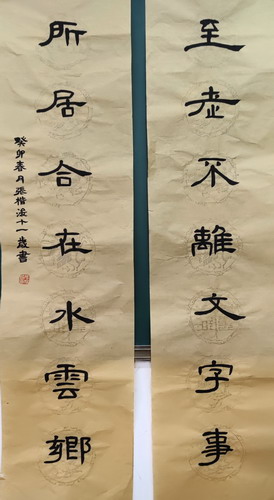 至老不離文字事
所居合在水雲鄉
癸卯春月張楷浤十一歲書